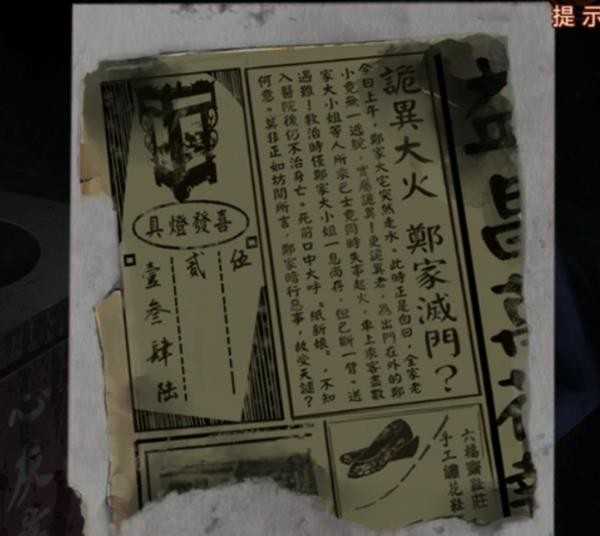 提示
詭異大火　鄭家滅門？
今日上午，鄭家大宅突然走水。此時正是白日，全家老
小竟無一逃脫，實屬詭異！更詭異者，為出門在外的鄭
家大小姐等人所乘巴士竟同時失事起火，車上乘客盡數
遇難！救治時僅鄭家大小姐一息尚存，但已斷一臂。送
入醫院後仍不治身亡。死前口中大呼「紙新娘」，不知
何意。莫非正如坊間所言，鄭家暗行惡事，故受天譴？
喜發燈具
伍
貳
壹叁肆陸
六福齋鞋莊
手工繡花鞋